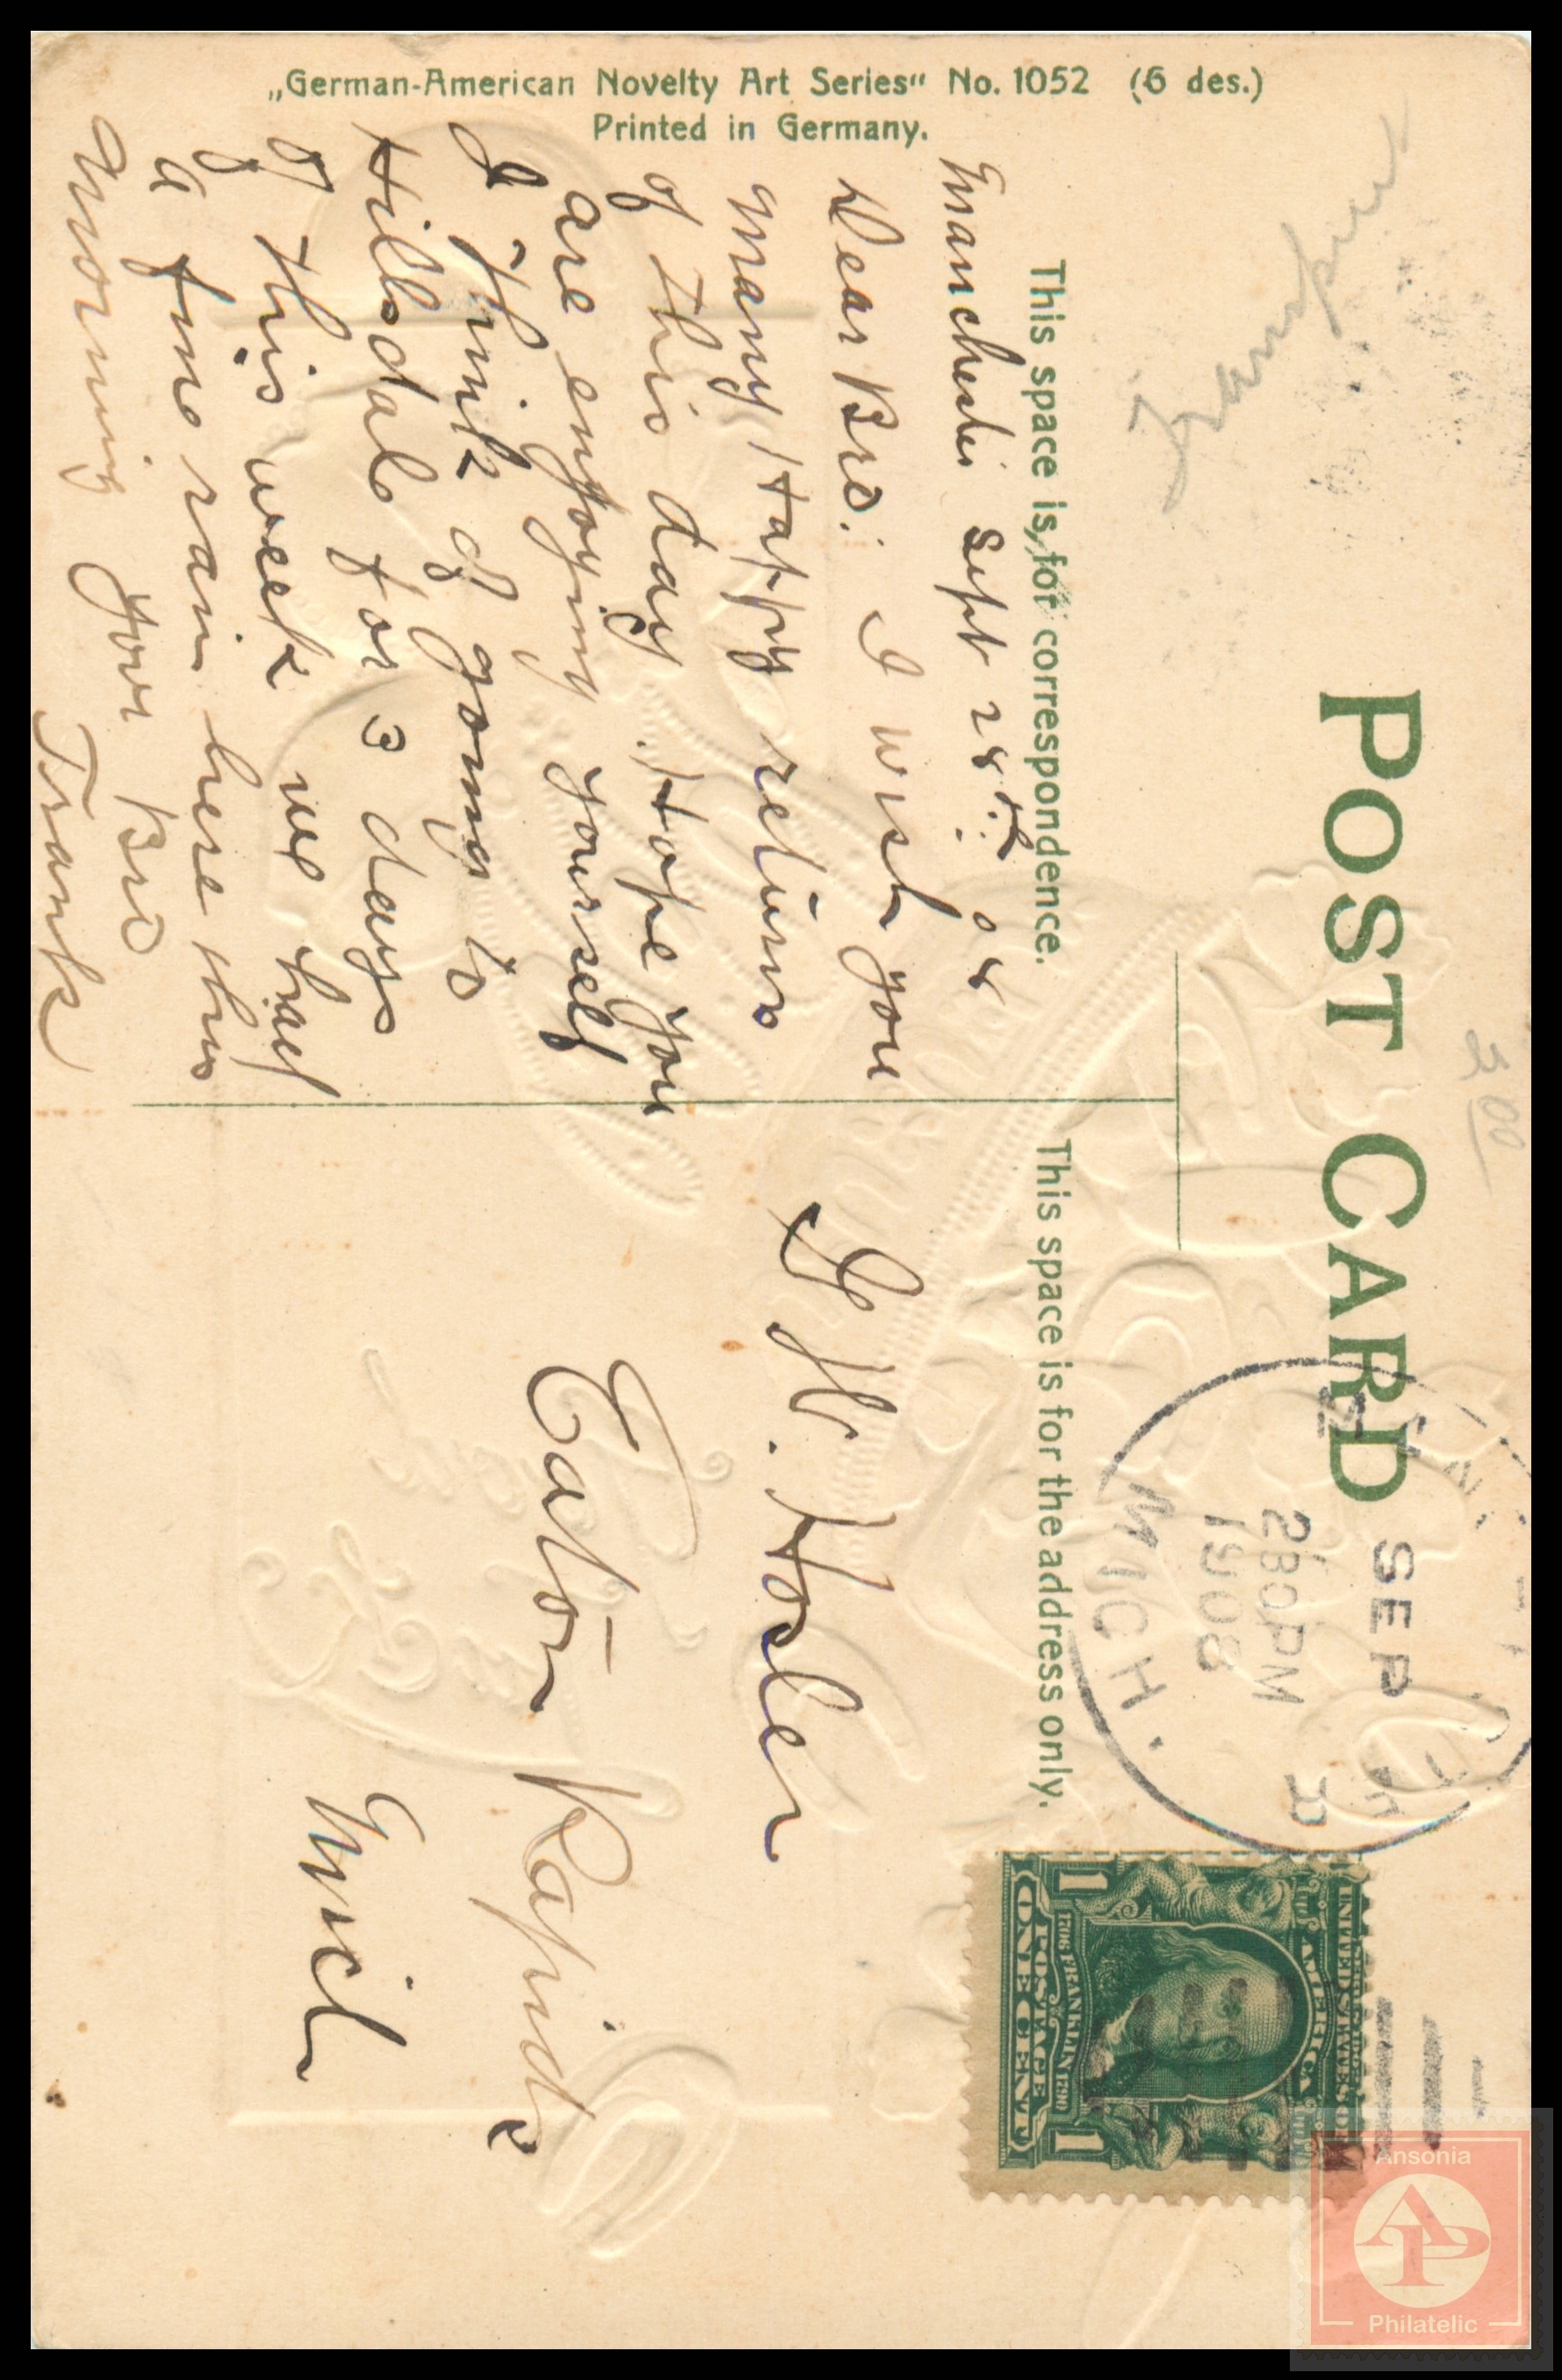 „German-American Novelty Art Series“ No. 1052 (6 des.)
Printed in Germany.
POST CARD
This space is for correspondence.
This space is for the address only.
Manchester Sept 28th. 08
Dear Bro. I wish you
many Happy returns
of this day. Hope you
are enjoying yourself
I think of going to
Hillsdale for 3 days
of this week we had
a fine rain here this
morning Your Bro
Frank
H. Hosler
Eaton Rapids
Mich
SEP
230PM
1908
MICH.
UNITED STATES OF
AMERICA
1706 FRANKLIN 1790
POSTAGE
1 ONE CENT 1
5.00
Ansonia
AP
Philatelic